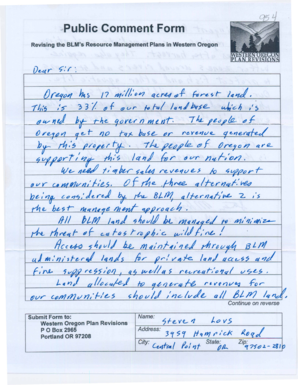 954
Public Comment Form
Revising the BLM's Resource Management Plans in Western Oregon
WESTERN OREGON
PLAN REVISIONS
Dear Sir:
Oregon has 17 million acres of forest land.
This is 33% of our total landbase which is
owned by the government. The people of
Oregon get no tax base or revenue generated
by this property. The people of Oregon are
supporting this land for our nation.
We need timber sales revenues to support
our communities. Of the three alternatives
being considered by the BLM, alternative 2 is
the best management approach.
All BLM land should be managed to minimize
the threat of catastrophic wildfire!
Access should be maintained through BLM
administered lands for private land access and
fire suppression, as well as recreational uses.
Land allocated to generate revenues for
our communities should include all BLM land.
Continue on reverse
Submit Form to:
Western Oregon Plan Revisions
P O Box 2965
Portland OR 97208
Name: Steven
Address: 3959 Hamrick Road
City: Central Point State: OR Zip: 97502-2810